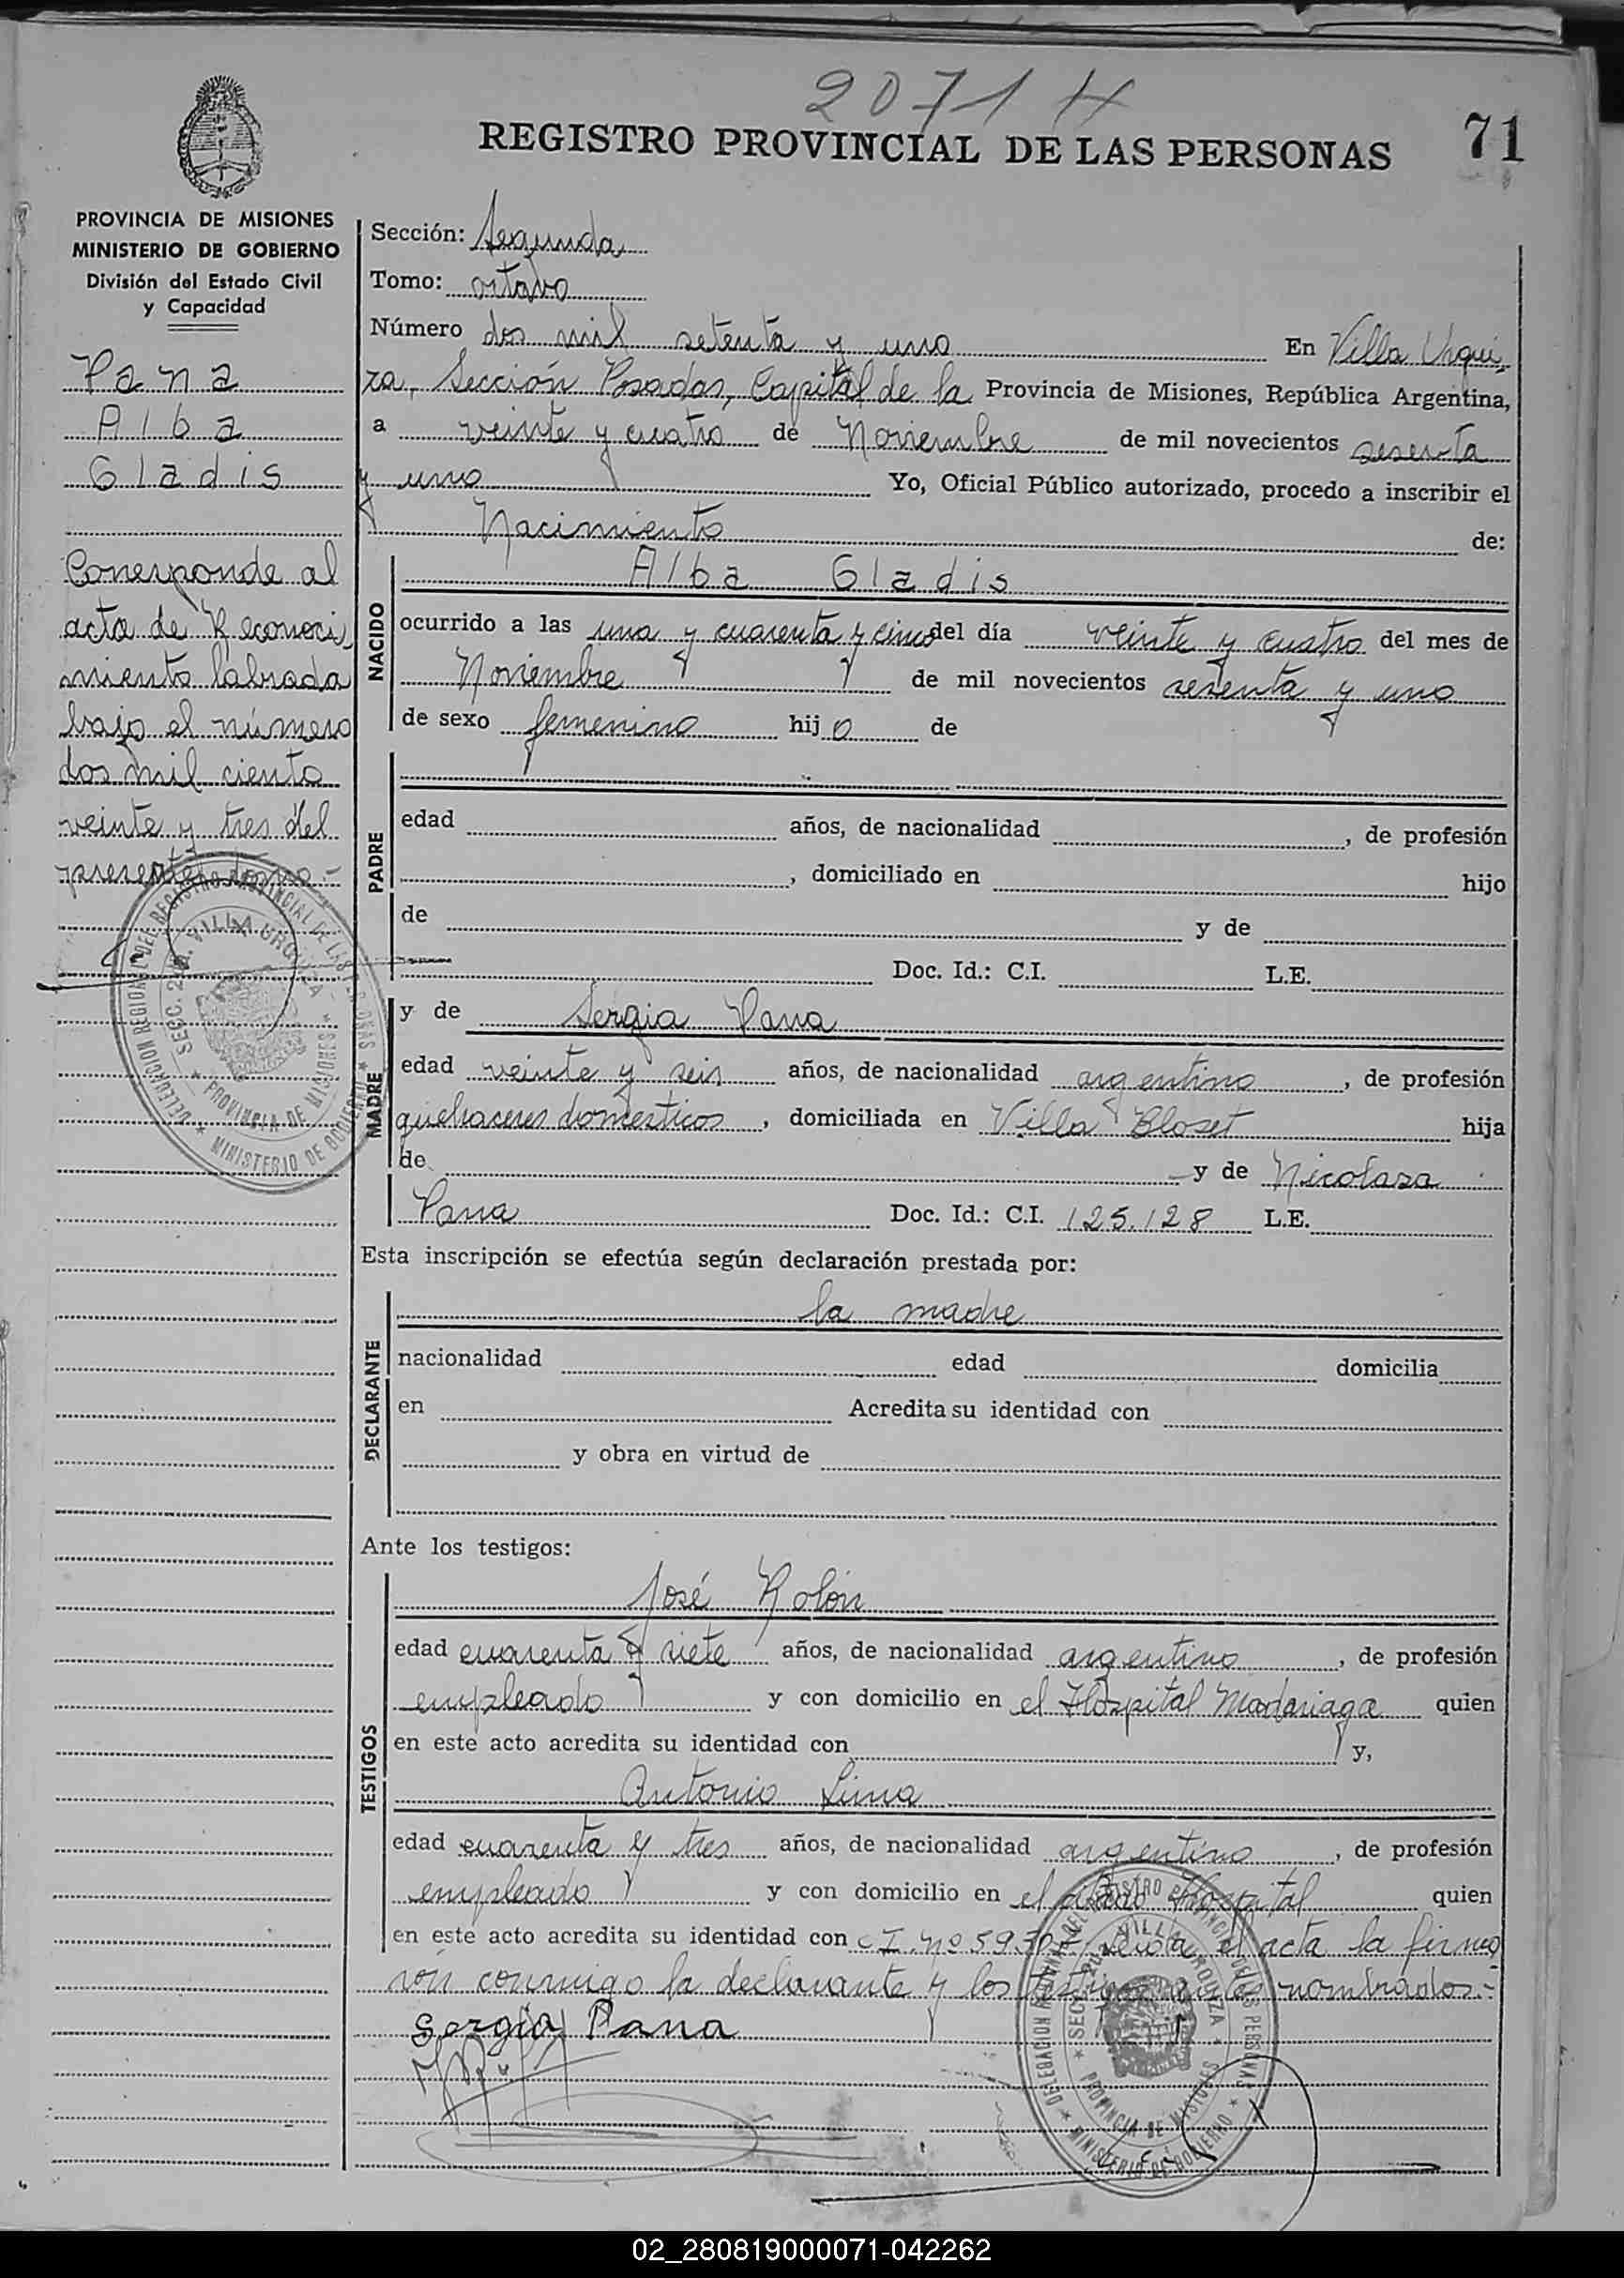 2071 H
REGISTRO PROVINCIAL DE LAS PERSONAS
71
PROVINCIA DE MISIONES
MINISTERIO DE GOBIERNO
División del Estado Civil
y Capacidad
Pana
Alba
Gladis
Corresponde al
acta de Reconoci
miento labrada
bajo el número
dos mil ciento
veinte y tres del
presente tomo.-
Sección: Segunda
Tomo: octavo
Número dos mil setenta y uno En Villa Urqui
za, Sección Posadas, Capital de la Provincia de Misiones, República Argentina,
a veinte y cuatro de Noviembre de mil novecientos sesenta
y uno Yo, Oficial Público autorizado, procedo a inscribir el
Nacimiento de:
NACIDO
Alba Gladis
ocurrido a las una y cuarenta y cinco del día veinte y cuatro del mes de
Noviembre de mil novecientos sesenta y uno
de sexo femenino hij o de
PADRE
edad años, de nacionalidad , de profesión
, domiciliado en hijo
de y de
Doc. Id.: C.I. L.E.
MADRE
y de Sergia Pana
edad veinte y seis años, de nacionalidad argentina , de profesión
quehaceres domésticos , domiciliada en Villa Bloset hija
de y de Nicolasa
Pana Doc. Id.: C.I. 125.128 L.E.
Esta inscripción se efectúa según declaración prestada por:
DECLARANTE
la madre
nacionalidad edad domicilia
en Acredita su identidad con
y obra en virtud de
Ante los testigos:
TESTIGOS
José Rolón
edad cuarenta y siete años, de nacionalidad argentino , de profesión
empleado y con domicilio en el Hospital Madariaga quien
en este acto acredita su identidad con y,
Antonio Lima
edad cuarenta y tres años, de nacionalidad argentino , de profesión
empleado y con domicilio en el citado Hospital quien
en este acto acredita su identidad con C.I. Nº el acta la firma
ron conmigo la declarante y los testigos nombrados.-
Sergia Pana
DELEGACION REGIONAL DEL REGISTRO PROVINCIAL DE LAS PERSONAS
SECC. 2da. VILLA URQUIZA
PROVINCIA DE MISIONES
MINISTERIO DE GOBIERNO
DELEGACION REGIONAL DEL REGISTRO PROVINCIAL DE LAS PERSONAS
SECC. 2da. VILLA URQUIZA
PROVINCIA DE MISIONES
MINISTERIO DE GOBIERNO
02_280819000071-042262